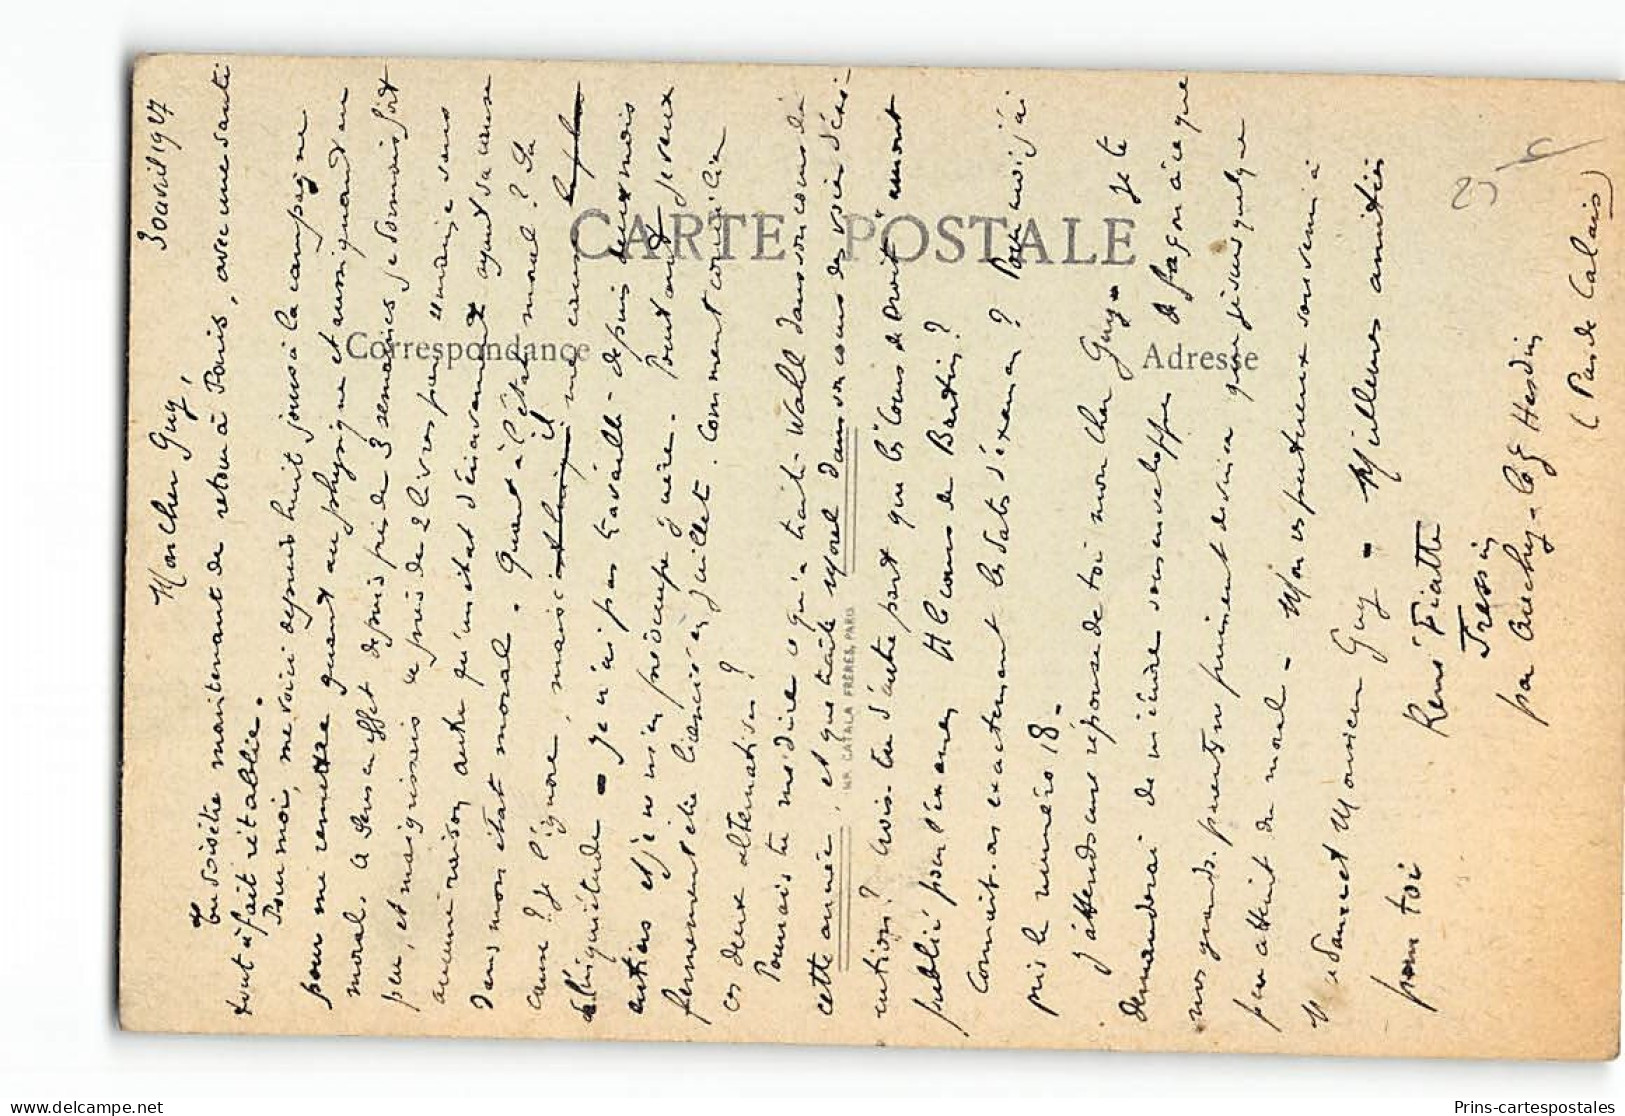 30 avril 1927
Mon cher Guy,
Tu dois être maintenant de retour à Paris, avec une santé
tout à fait rétablie.
Pour moi, me voici depuis huit jours à la campagne
pour me remettre quant au physique et aussi quant au
moral. Je dors en effet depuis près de 3 semaines je dormais fort
peu, et maigrissais de près de 2 livres par semaine sans
aucune raison autre qu'un état d'énervement ayant sa cause
dans mon état moral. Quant à l'état moral ? Sa
cause ? Je l'ignore, mais il me cause
de l'inquiétude - je n'ai pas travaillé depuis deux mois
entiers et je m'en préoccupe guère. Pourtant je veux
fermement être licencié en juillet. Comment concilier
ces deux alternatives ?
Pourrais-tu me dire ce qu'a traité Wahl dans son cours de
cette année, et que traite Morel dans son cours de voies d'exé-
cution ? Crois-tu d'autre part que les "Cours de Droit" auront
publié pour l'examen le cours de Bartin ?
Connait-on exactement les dates d'examen ? Pour moi j'ai
pris le numéro 18 -
J'attends une réponse de toi mon cher Guy - Je te
demanderai de m'écrire sous enveloppe de façon à ce que
mes grands-parents ne puissent deviner que je suis quelque
peu atteint du moral - Mon respectueux souvenir à
Madame et Monsieur Guy - Meilleures amitiés
pour toi
René Fiatte
Tressin
par Auchy-les-Hesdin
(Pas de Calais)
CARTE POSTALE
Correspondance
Adresse
IMP. CATALA FRÈRES, PARIS
Delcampe.net
Prins-cartespostales